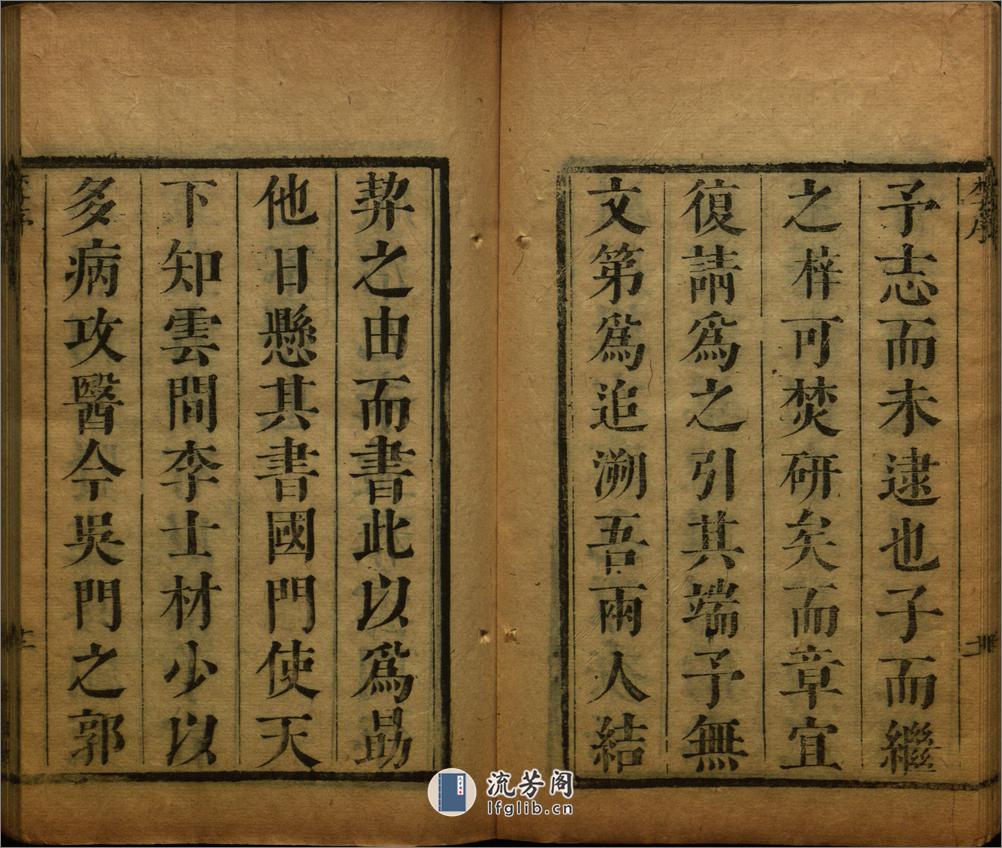 予志而未逮也子而繼
之梓可焚研矣而章宜
復請爲之引其端予無
文第爲追溯吾兩人結
契之由而書此以爲勗
他日懸其書國門使天
下知雲間李士材少以
多病攻醫今吳門之郭
流芳阁
lfglib.cn